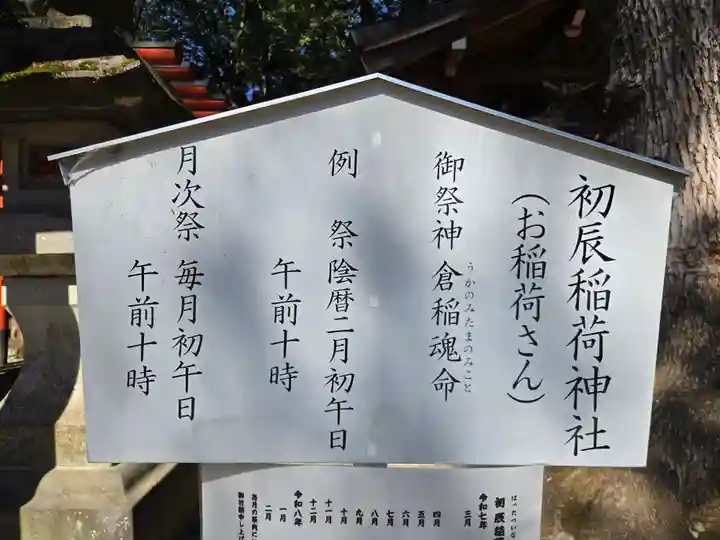 初辰稲荷神社
（お稲荷さん）
御祭神 倉稲魂命
うかのみたまのみこと
例 祭 陰暦二月初午日
午前十時
月次祭 毎月初午日
午前十時
はったついな
初辰稲
令和七年
三月
四月
五月
六月
七月
八月
九月
十月
十一月
十二月
令和八年
一月
二月
毎月の祭典に
御社頭申し上